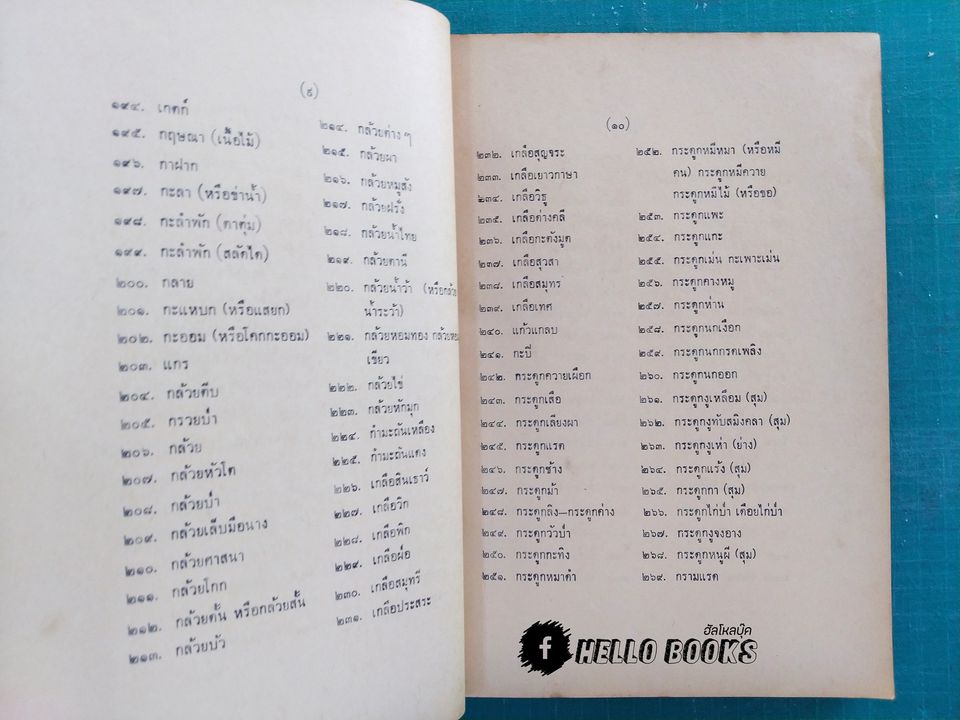 (๙)
๑๙๔. เกตก์
๑๙๕. กฤษณา (เนื้อไม้)
๑๙๖. กาฝาก
๑๙๗. กะลา (หรือข่าน้ำ)
๑๙๘. กะลำพัก (ตาตุ่ม)
๑๙๙. กะลำพัก (สลัดได)
๒๐๐. กลาย
๒๐๑. กะแหบก (หรือแสยก)
๒๐๒. กะออม (หรือโคกกะออม)
๒๐๓. แกร
๒๐๔. กล้วยตีบ
๒๐๕. กรวยป่า
๒๐๖. กล้วย
๒๐๗. กล้วยหัวโต
๒๐๘. กล้วยป่า
๒๐๙. กล้วยเล็บมือนาง
๒๑๐. กล้วยศาสนา
๒๑๑. กล้วยโกก
๒๑๒. กล้วยตั้น หรือกล้วยสั้น
๒๑๓. กล้วยบัว
๒๑๔. กล้วยต่าง ๆ
๒๑๕. กล้วยผา
๒๑๖. กล้วยหมูสัง
๒๑๗. กล้วยฝรั่ง
๒๑๘. กล้วยน้ำไทย
๒๑๙. กล้วยตานี
๒๒๐. กล้วยน้ำว้า (หรือกล้วย
น้ำระว้า)
๒๒๑. กล้วยหอมทอง กล้วยหอม
เขียว
๒๒๒. กล้วยไข่
๒๒๓. กล้วยหักมุก
๒๒๔. กำมะถันเหลือง
๒๒๕. กำมะถันแดง
๒๒๖. เกลือสินเธาว์
๒๒๗. เกลือวิก
๒๒๘. เกลือพิก
๒๒๙. เกลือฝ่อ
๒๓๐. เกลือสมุทรี
๒๓๑. เกลือประสระ
(๑๐)
๒๓๒. เกลือสุญจระ
๒๓๓. เกลือเยาวกาษา
๒๓๔. เกลือวิธู
๒๓๕. เกลือด่างคลี
๒๓๖. เกลือกะตังมูต
๒๓๗. เกลือสุวสา
๒๓๘. เกลือสมุทร
๒๓๙. เกลือเทศ
๒๔๐. แก้วแกลบ
๒๔๑. กะปิ
๒๔๒. กระดูกควายเผือก
๒๔๓. กระดูกเสือ
๒๔๔. กระดูกเลียงผา
๒๔๕. กระดูกแรด
๒๔๖. กระดูกช้าง
๒๔๗. กระดูกม้า
๒๔๘. กระดูกลิง—กระดูกค่าง
๒๔๙. กระดูกวัวป่า
๒๕๐. กระดูกกะทิง
๒๕๑. กระดูกหมาดำ
๒๕๒. กระดูกหมีหมา (หรือหมี
คน) กระดูกหมีควาย
กระดูกหมีไม้ (หรือขอ)
๒๕๓. กระดูกแพะ
๒๕๔. กระดูกแกะ
๒๕๕. กระดูกเม่น กะเพาะเม่น
๒๕๖. กระดูกคางหมู
๒๕๗. กระดูกห่าน
๒๕๘. กระดูกนกเงือก
๒๕๙. กระดูกนกกรดเพลิง
๒๖๐. กระดูกนกออก
๒๖๑. กระดูกงูเหลือม (สุม)
๒๖๒. กระดูกงูทับสมิงคลา (สุม)
๒๖๓. กระดูกงูเห่า (ย่าง)
๒๖๔. กระดูกแร้ง (สุม)
๒๖๕. กระดูกกา (สุม)
๒๖๖. กระดูกไก่ป่า เดือยไก่ป่า
๒๖๗. กระดูกงูจงอาง
๒๖๘. กระดูกหนูผี (สุม)
๒๖๙. กรามแรด
ฮัลโหลบุ๊ค
f HELLO BOOKS